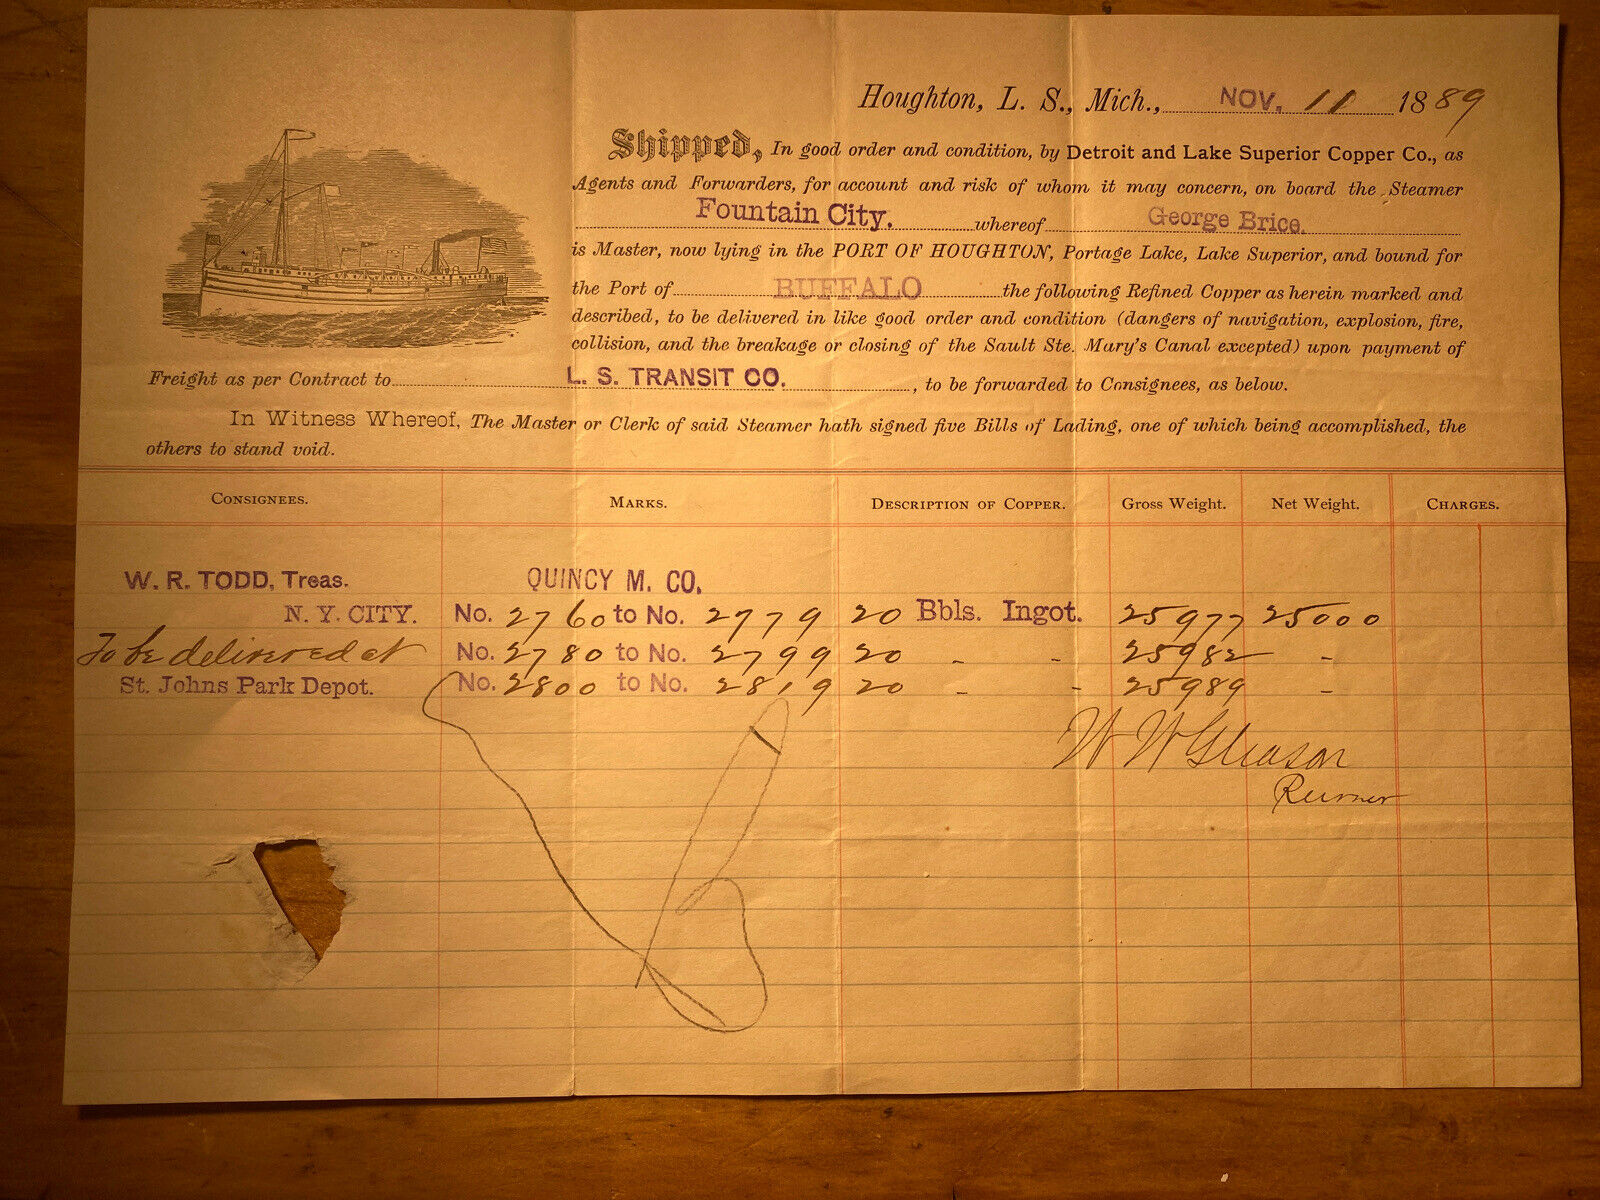 Houghton, L. S., Mich., NOV. 11 1889
Shipped, In good order and condition, by Detroit and Lake Superior Copper Co., as
Agents and Forwarders, for account and risk of whom it may concern, on board the Steamer
Fountain City. whereof George Brice.
is Master, now lying in the PORT OF HOUGHTON, Portage Lake, Lake Superior, and bound for
the Port of BUFFALO the following Refined Copper as herein marked and
described, to be delivered in like good order and condition (dangers of navigation, explosion, fire,
collision, and the breakage or closing of the Sault Ste. Mary's Canal excepted) upon payment of
Freight as per Contract to L. S. TRANSIT CO. , to be forwarded to Consignees, as below.
In Witness Whereof, The Master or Clerk of said Steamer hath signed five Bills of Lading, one of which being accomplished, the
others to stand void.
CONSIGNEES. MARKS. DESCRIPTION OF COPPER. Gross Weight. Net Weight. CHARGES.
W. R. TODD, Treas. QUINCY M. CO.
N. Y. CITY. No. 2760 to No. 2779 20 Bbls. Ingot. 25977 25000
To be delivered at No. 2780 to No. 2799 20 - - 25982 -
St. Johns Park Depot. No. 2800 to No. 2819 20 - - 25989 -
W W Gleason